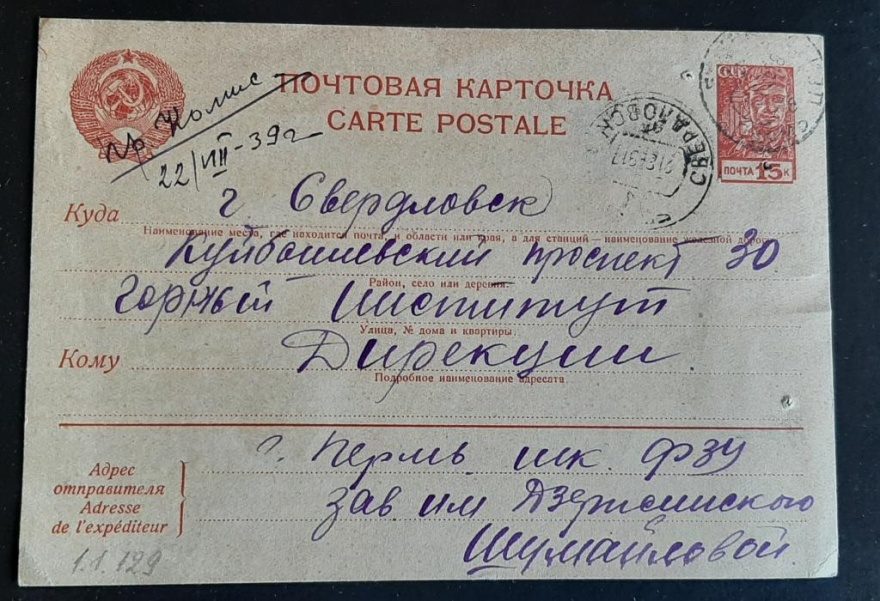 ПОЧТОВАЯ КАРТОЧКА
CARTE POSTALE
Пр
22/VIII-39г
СВЕРДЛОВСК
ПОЧТА 15 К
Куда г Свердловск
Наименование места, где находится почта, и области или края, а для станций — наименование железной дороги
Куйбышевский проспект 30
Район, село или деревня.
Горный Институт
Улица, № дома и квартиры.
Кому Дирекции
Подробное наименование адресата
г. Пермь шк. ФЗУ
Адрес
отправителя
Adresse
de l'expéditeur
зав им Дзержинского
Шумайловой
1.1.129